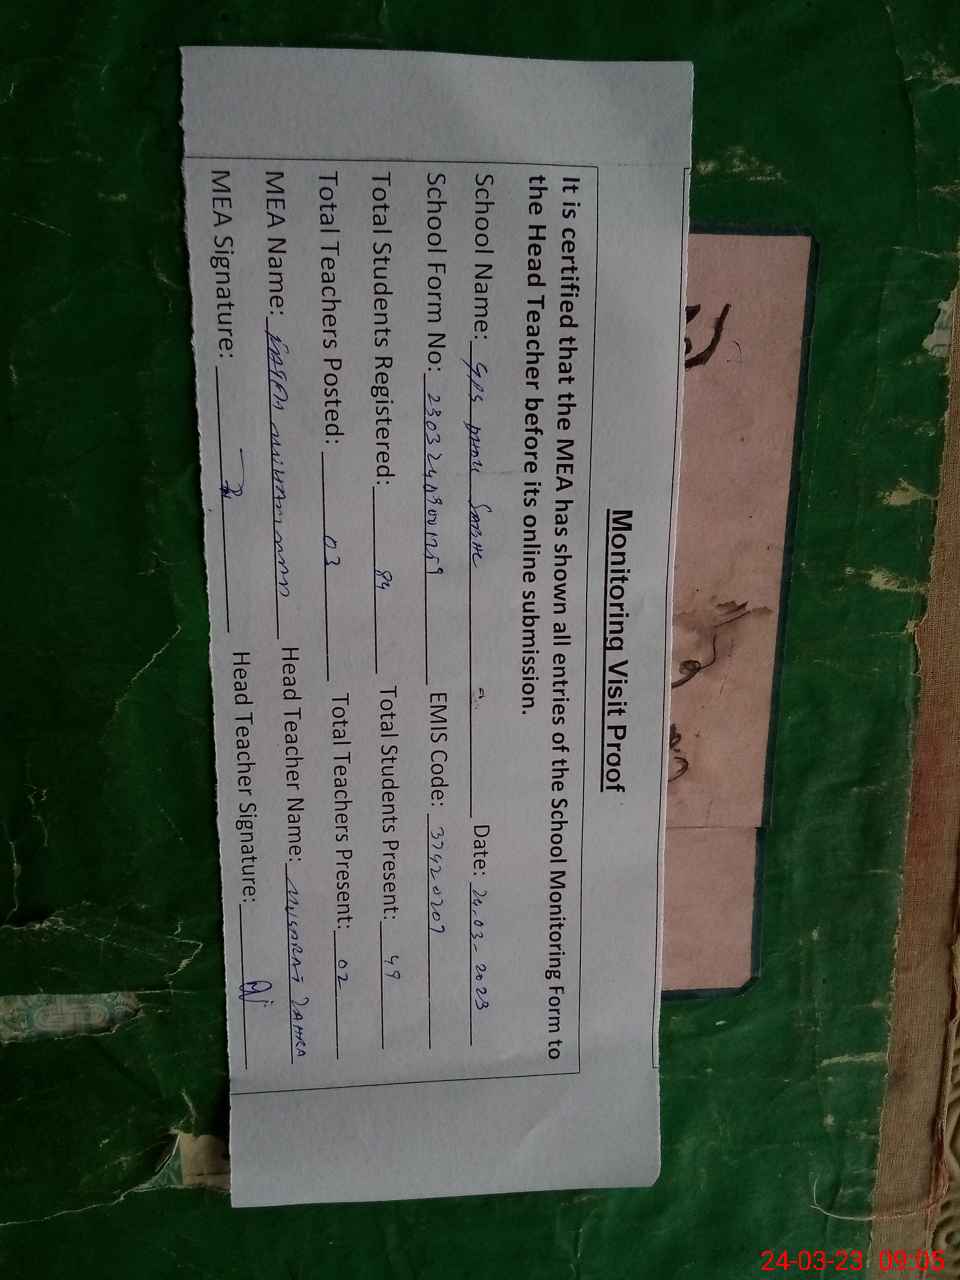 Monitoring Visit Proof
It is certified that the MEA has shown all entries of the School Monitoring Form to
the Head Teacher before its online submission.
School Name: GPS Date: 24.03-2023
School Form No: EMIS Code: 37420207
Total Students Registered: 84 Total Students Present: 49
Total Teachers Posted: 03 Total Teachers Present: 02
MEA Name: Head Teacher Name: MUSARAT ZAHRA
MEA Signature: Head Teacher Signature:
24-03-23 09:05